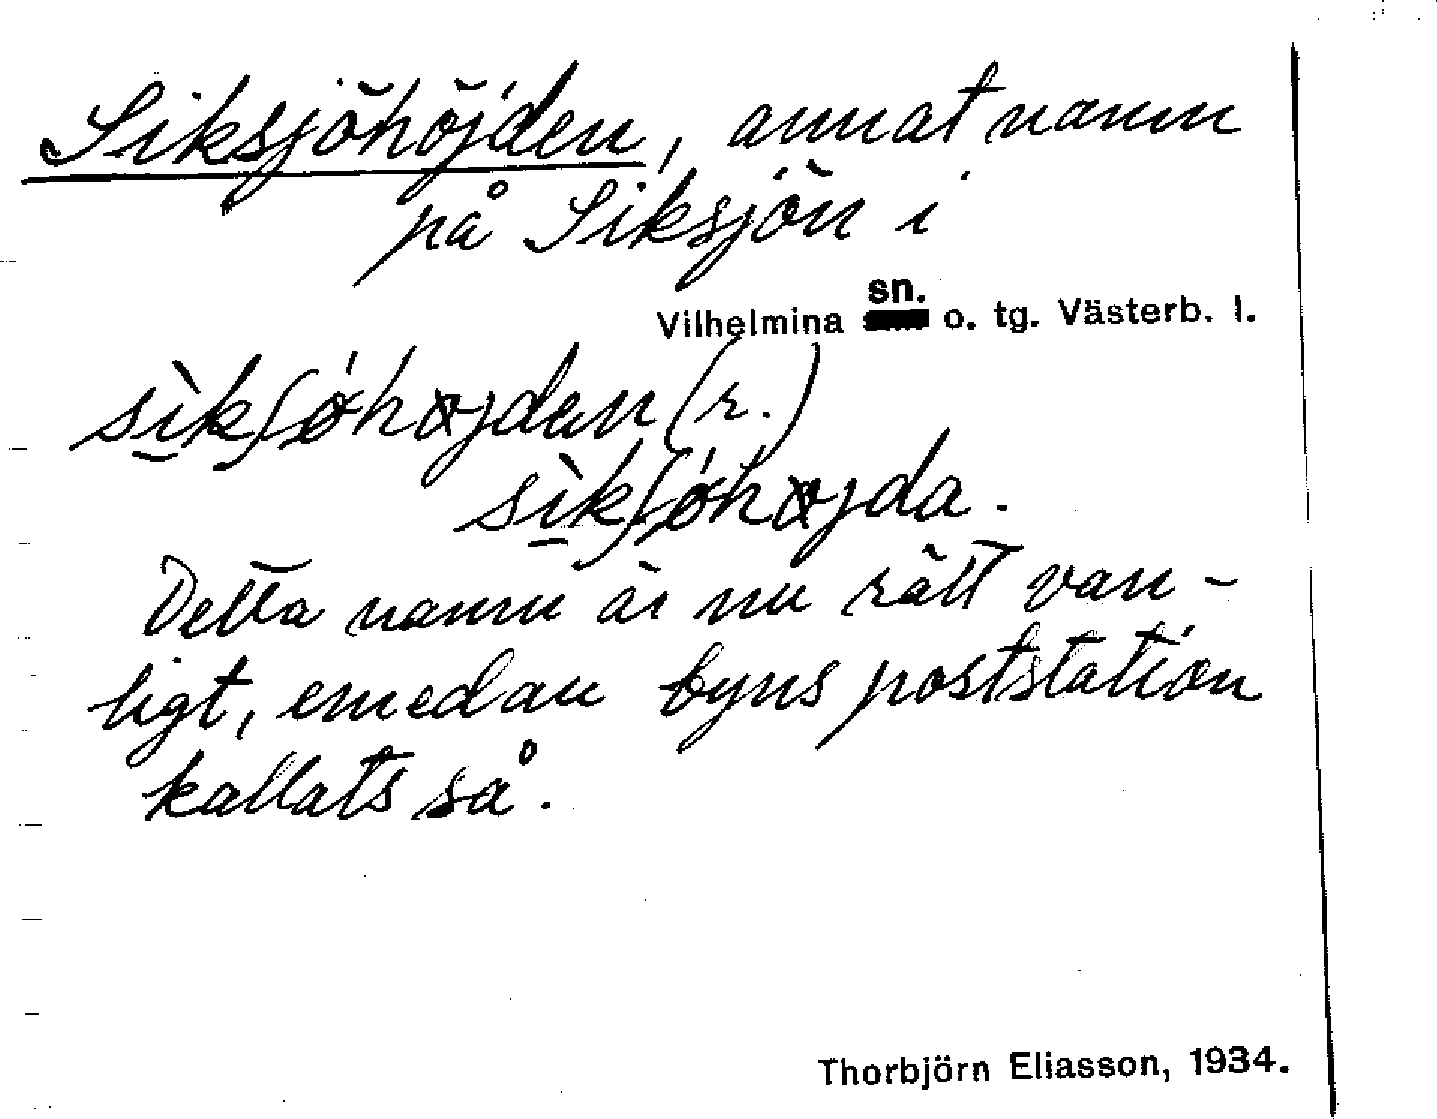 Siksjöhöjden, annat namn
på Siksjön i
Vilhelmina sn. o. tg. Västerb. l.
sìkʃǿhøjdan (r.)
sìkʃǿhøjda.
Detta namn är nu rätt van-
ligt, emedan byns poststation
kallats så.
Thorbjörn Eliasson, 1934.